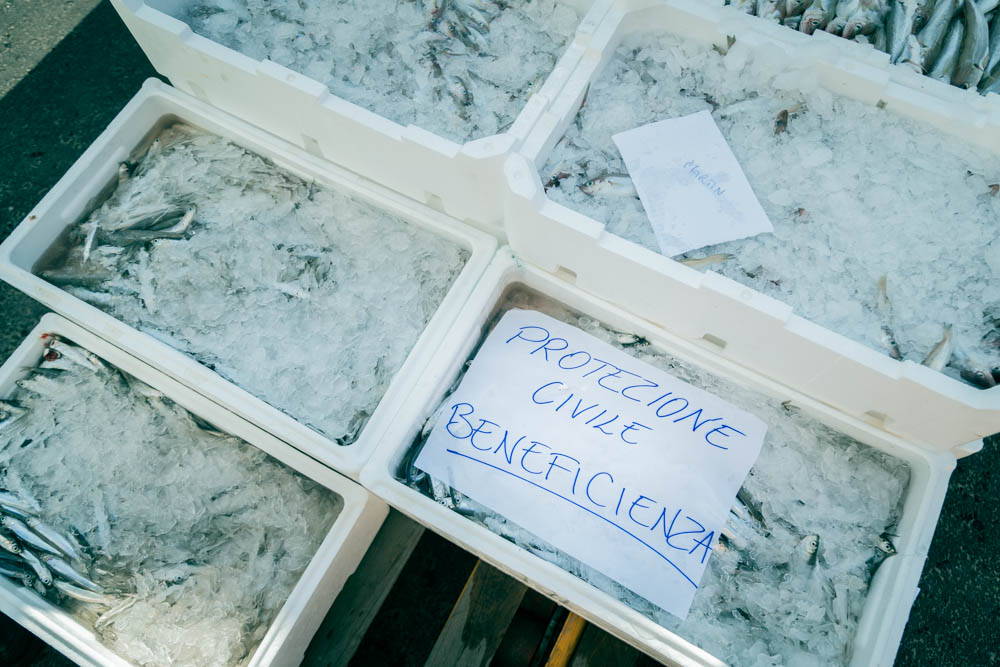 MARTIN
PROTEZIONE
CIVILE
BENEFICIENZA